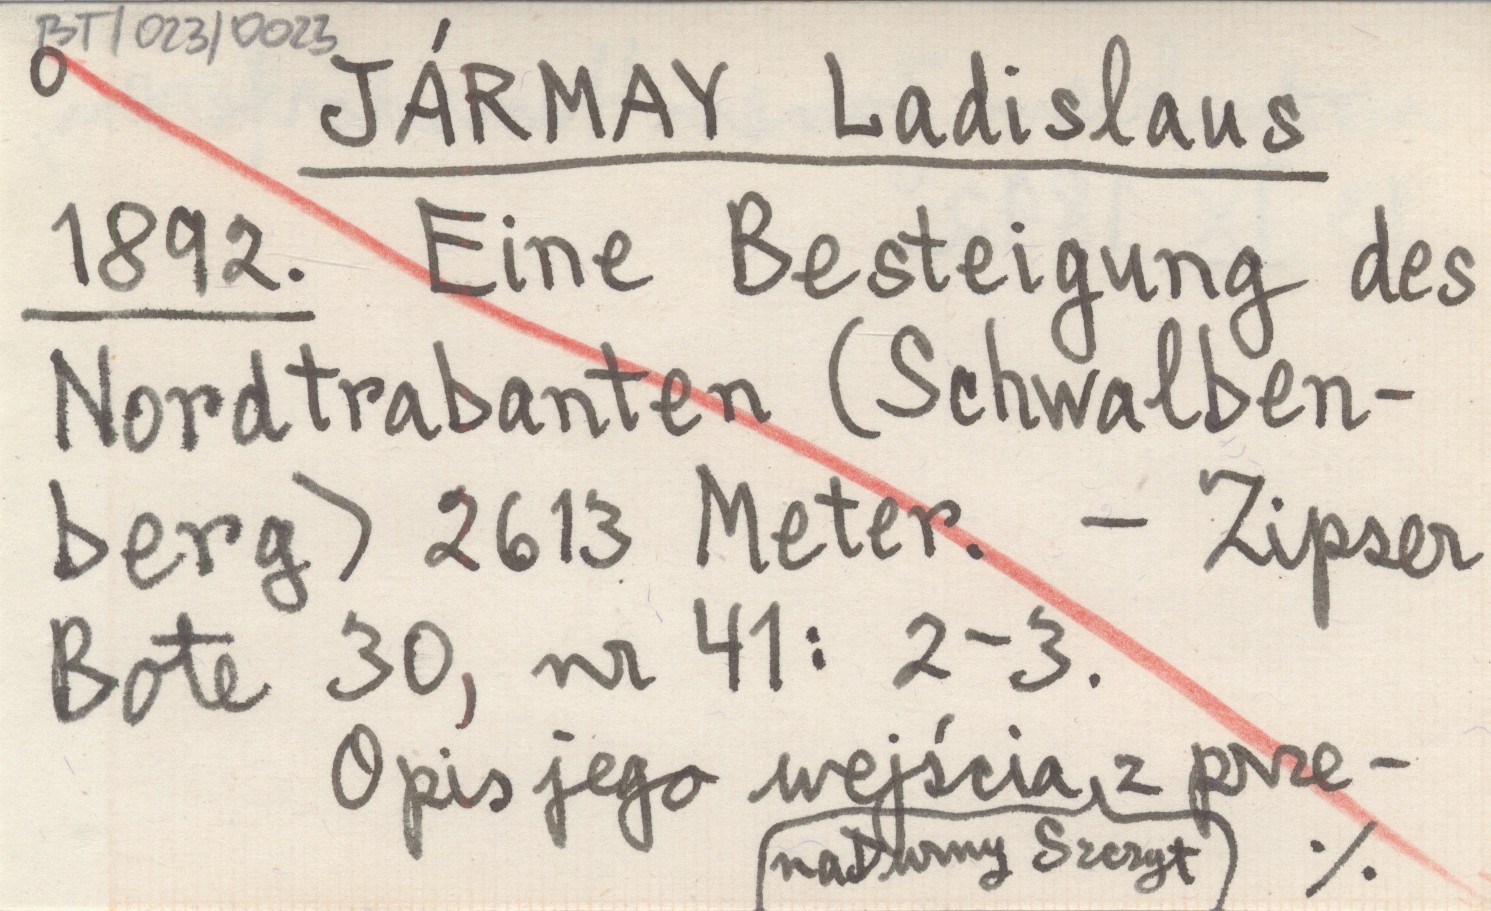 BT/023/0023
O
JÁRMAY Ladislaus
1892. Eine Besteigung des
Nordtrabanten (Schwalben-
berg) 2613 Meter. - Zipser
Bote 30, nr 41: 2-3.
Opis jego wejścia, z prze-
na Durny Szczyt ./.